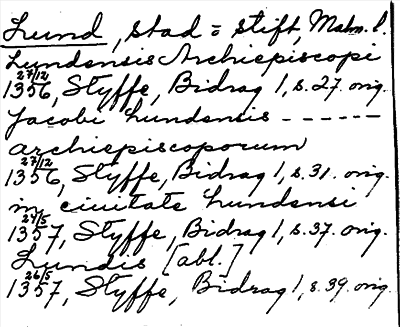 Lund, stad = stift, Malm. l.
Lundensis Archiepiscopi
27/12 1356, Styffe, Bidrag 1, s. 27. orig.
Jacobi Lundensis - - - - - -
archiepiscoporum
27/12 1356, Styffe, Bidrag 1, s. 31. orig.
in ciuitate Lundensi
24/5 1357, Styffe, Bidrag 1, s. 37. orig.
Lundis [abl.]
26/5 1357, Styffe, Bidrag 1, s. 39. orig.